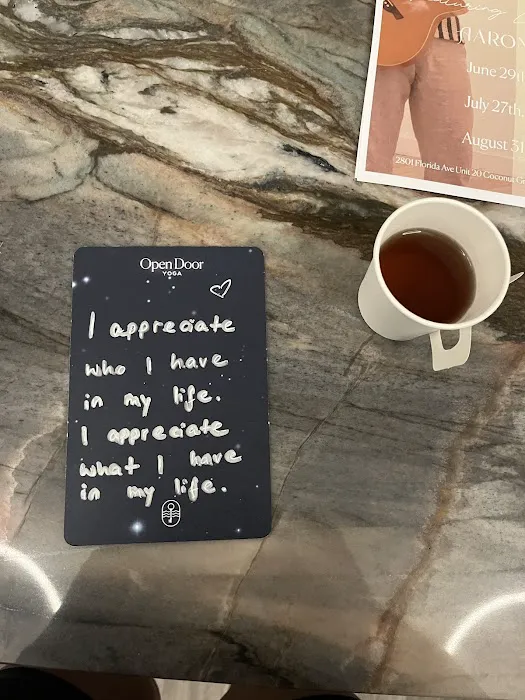 AARO
June 29
July 27th
August 31
2801 Florida Ave Unit 20 Coconut G
Open Door
YOGA
I appreciate
who I have
in my life.
I appreciate
what I have
in my life.